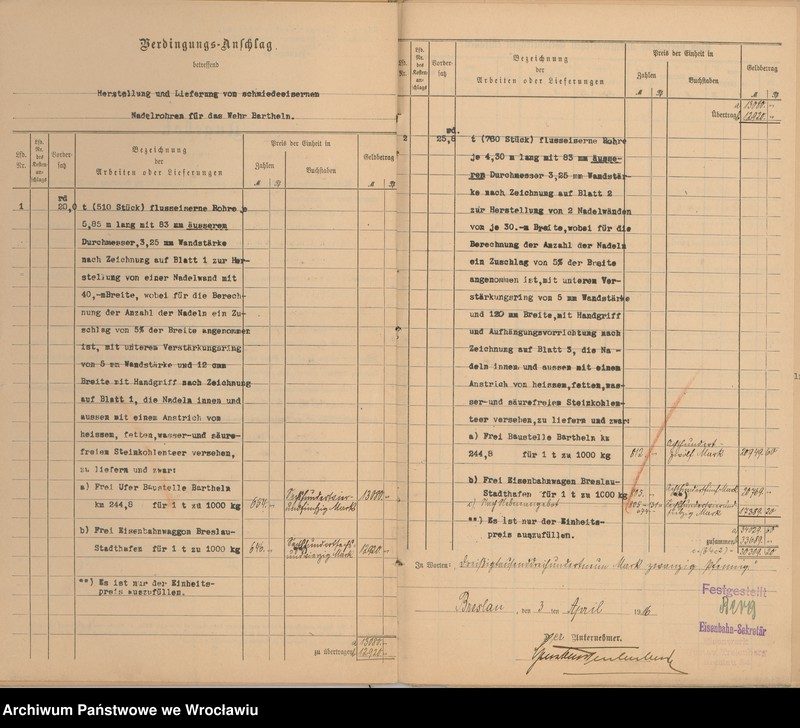 Verdingungs-Anschlag
betreffend
Herstellung und Lieferung von schmiedeeisernen
Nadelrohren für das Wehr Bartheln.
Lfd. Nr.
Lfd. Nr. des Kosten-anschlags
Vorder-satz
Bezeichnung der Arbeiten oder Lieferungen
Preis der Einheit in
Zahlen
Buchstaben
Geldbetrag
M
1
rd
20,0
t (510 Stück) flusseiserne Rohre je
5,85 m lang mit 83 mm äusseren
Durchmesser,3,25 mm Wandstärke
nach Zeichnung auf Blatt 1 zur Her-
stellung von einer Nadelwand mit
40,-mBreite, wobei für die Berech-
nung der Anzahl der Nadeln ein Zu-
schlag von 5% der Breite angenommen
ist, mit unteren Verstärkungsring
von 5 mm Wandstärke und 12 cm
Breite mit Handgriff nach Zeichnung
auf Blatt 1, die Nadeln innen und
aussen mit einem Anstrich von
heissem, fetten,wasser-und säure-
freiem Steinkohlenteer versehen,
zu liefern und zwar:
a) Frei Ufer Baustelle Bartheln
km 244,8 für 1 t zu 1000 kg
13000.
b) Frei Eisenbahnwaggon Breslau-
Stadthafen für 1 t zu 1000 kg
646. 12920
**) Es ist nur der Einheits-
preis auszufüllen.
zu übertragen
a 13000.
b 12920.
Lfd. Nr.
Lfd. Nr. des Kosten-anschlags
Vorder-satz
Bezeichnung der Arbeiten oder Lieferungen
Preis der Einheit in
Zahlen
Buchstaben
Geldbetrag
M
a 13000.
Übertrag b 12920.
2
rd.
25,6
t (760 Stück) flusseiserne Rohre
je 4,30 m lang mit 83 mm äusse-
ren Durchmesser 3,25 mm Wandstär-
ke nach Zeichnung auf Blatt 2
zur Herstellung von 2 Nadelwänden
von je 30.-m Breite,wobei für die
Berechnung der Anzahl der Nadeln
ein Zuschlag von 5% der Breite
angenommen ist,mit unterem Ver-
stärkungsring von 5 mm Wandstärke
und 120 mm Breite,mit Handgriff
und Aufhängungsvorrichtung nach
Zeichnung auf Blatt 3, die Na-
deln innen und aussen mit einem
Anstrich von heissem,fetten,was-
ser-und säurefreiem Steinkohlen-
teer versehen,zu liefern und zwar:
a) Frei Baustelle Bartheln km
244,8 für 1 t zu 1000 kg
812.
b) Frei Eisenbahnwagen Breslau-
Stadthafen für 1 t zu 1000 kg
**) Es ist nur der Einheits-
preis auszufüllen.
zusammen
In Worten: Dreißigtausenddreihundertneun Mark zwanzig Pfennig.
Breslau, den 3 ten April 1916
Der Unternehmer.
Festgestellt
Berg
Eisenbahn-Sekretär
Archiwum Państwowe we Wrocławiu